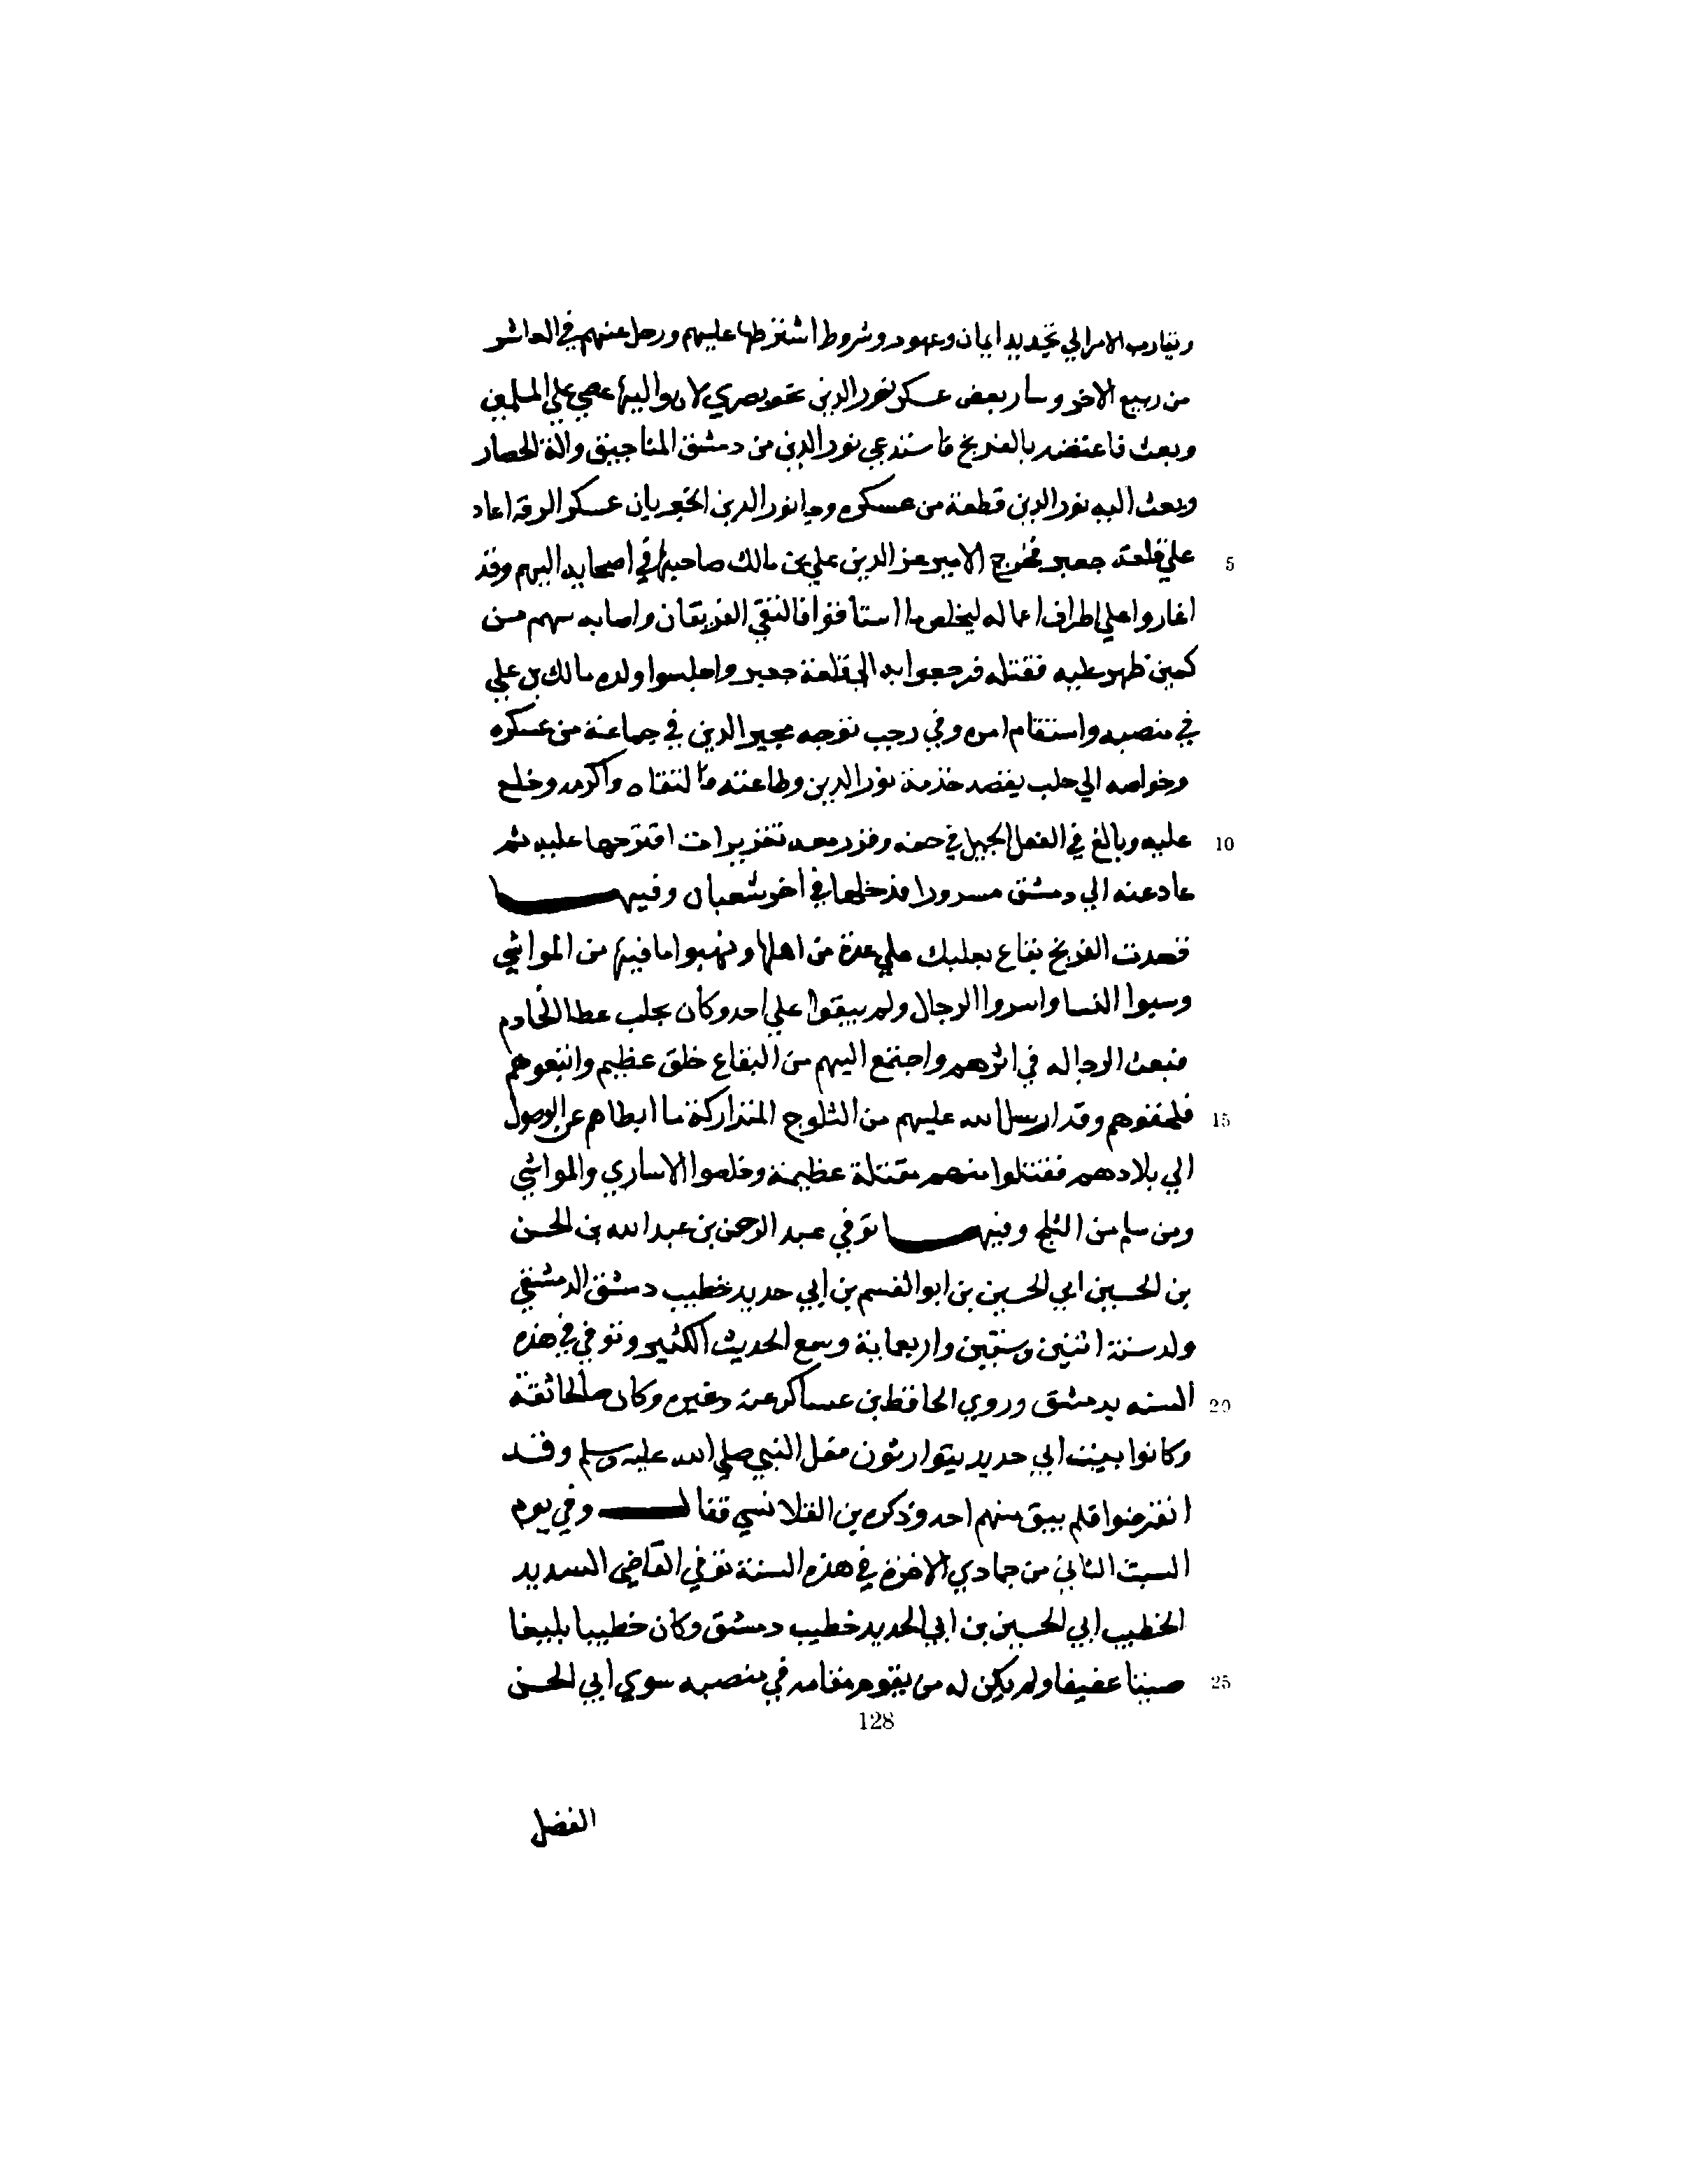 وتقارب الامر الي تجديد ايمان وعهود وشروط اشترطها عليهم ورحل عنهم في العاشر
من ربيع الاخر وسار بعض عسكر نور الدين نحو بصري لان واليها عصي علي المسلمين
وبعث فاعتضد بالفرنج فاستدعي نور الدين من دمشق المناجيق والة الحصار
وبعث اليه نور الدين قطعة من عسكره وجا نور الدين الخبر بان عسكر الرقة اغار
5 علي قلعة جعبر فخرج الامير عز الدين علي بن مالك صاحبها في اصحابه اليهم وقد
اغاروا علي اطراف اعماله ليخلص ما استاقوا فالتقي الفريقان واصابه سهم من
كمين ظهر عليه فقتله فرجعوا به الي قلعة جعبر واجلسوا ولده مالك بن علي
في منصبه واستقام امره وفي رجب توجه مجير الدين في جماعة من عسكره
وخواصه الي حلب يقصد خدمة نور الدين وطاعته فالتقاه واكرمه وخلع
10 عليه وبالغ في الفعل الجميل في حقه وقرر معه تقريرات اقترحها عليه ثم
عاد عنه الي دمشق مسرورا فدخلها في اخر شعبان وفيها
قصدت الفرنج بقاع بعلبك علي غرة من اهلها ونهبوا ما فيها من المواشي
وسبوا النسا واسروا الرجال ولم يبقوا علي احد وكان بحلب عطا الخادم
فبعث الرجاله في اثرهم واجتمع اليهم من البقاع خلق عظيم واتبعوهم
15 فلحقوهم وقد ارسل الله عليهم من الثلوج المتداركة ما ابطاهم عن الوصول
الي بلادهم فقتلوا منهم مقتلة عظيمة وخلصوا الاساري والمواشي
ومن سلم من الثلج وفيها توفي عبد الرحمن بن عبد الله بن الحسن
بن الحسين ابي الحسين بن ابو القسم بن ابي حديد خطيب دمشق الدمشقي
ولد سنة اثنين وستين واربعماية وسمع الحديث الكثير وتوفي في هذه
20 السنه بدمشق وروي الحافظ بن عساكر عنه وغيره وكان صالحا ثقة
وكانوا بيت ابي حديد يتوارثون نعل النبي صلي الله عليه وسلم وقد
انقرضوا فلم يبق منهم احد وذكره بن القلانسي فقال وفي يوم
السبت الثاني من جمادي الاخرة في هذه السنة توفي القاضي السديد
الخطيب ابي الحسين بن ابي الحديد خطيب دمشق وكان خطيبا بليغا
25 صينا عفيفا ولم يكن له من يقوم مقامه في منصبه سوي ابي الحسن
128
الفضل